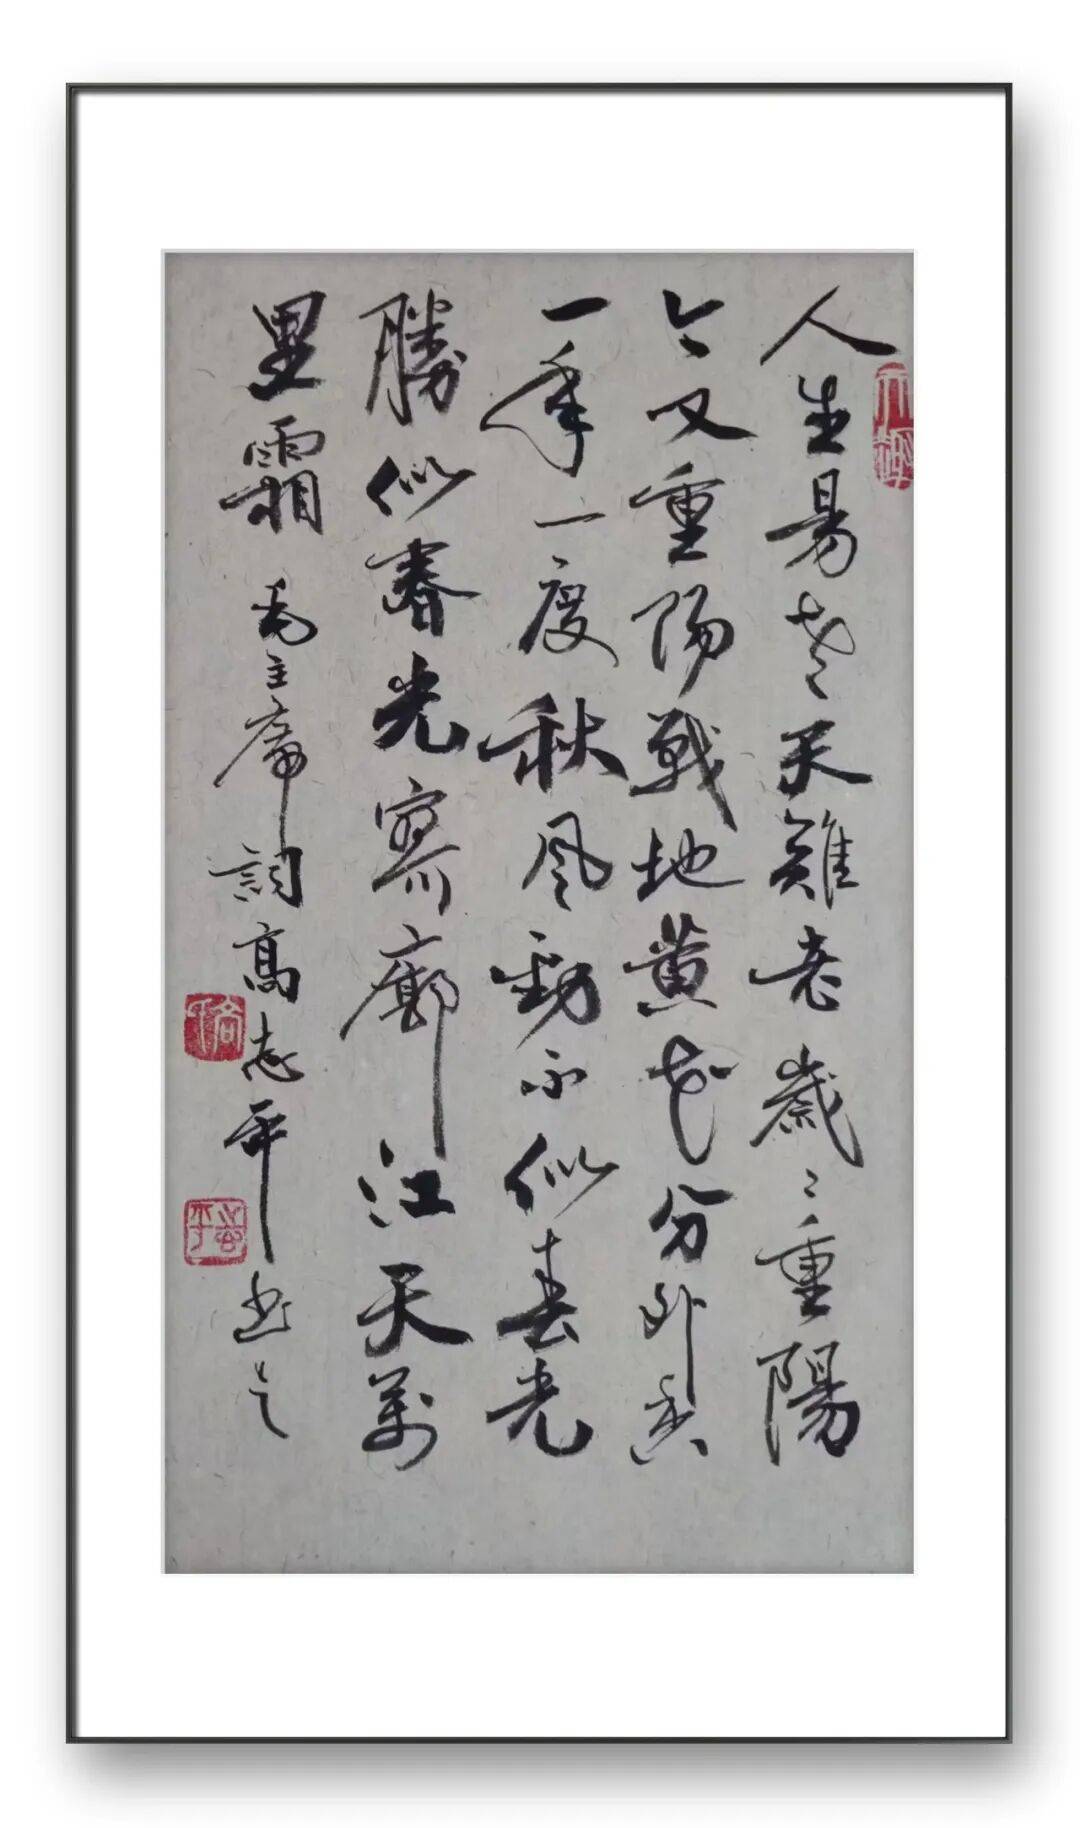 人生易老天難老歲〻重陽
今又重陽戰地黄花分外香
一年一度秋風勁不似春光
勝似春光寥廓江天萬
里霜 毛主席詞高志平书之
志平